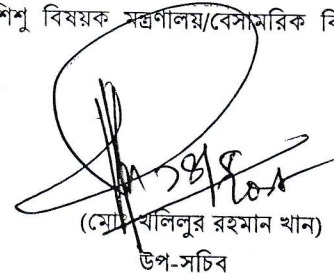 শিশু বিষয়ক মন্ত্রণালয়/বেসামরিক বি
(মোঃ খলিলুর রহমান খান)
উপ-সচিব